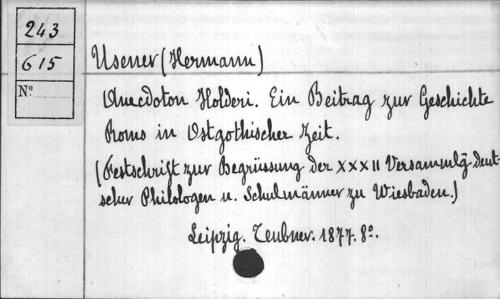 243
615
N°
Usener (Hermann)
Anecdoton Holderi. Ein Beitrag zur Geschichte
Roms in Ostgothischer Zeit.
(Festschrift zur Begrüssung der XXXII Versammlg. deut-
scher Philologen u. Schulmänner zu Wiesbaden.)
Leipzig. Teubner. 1877. 8°.